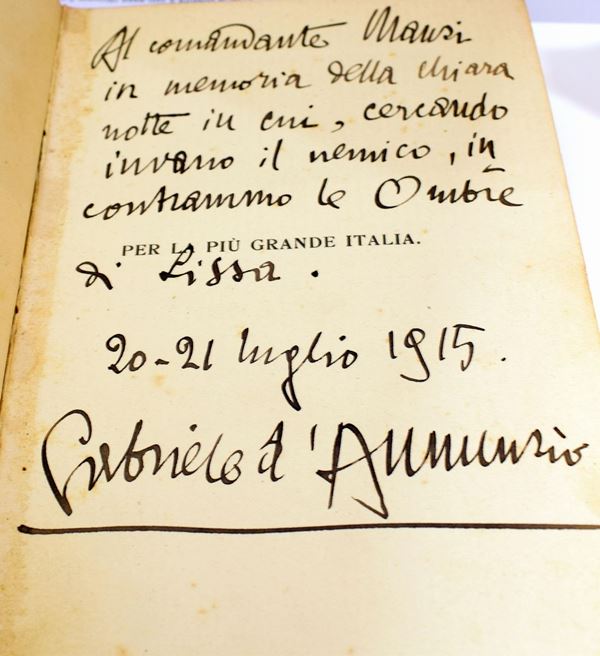 Al comandante Mausi
in memoria della chiara
notte in cui, cercando
invano il nemico, in
contrammo le Ombre
PER LA PIÙ GRANDE ITALIA.
di Lissa.
20-21 luglio 1915.
Gabriele d'Annunzio